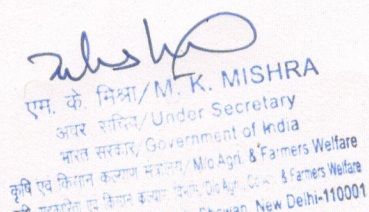 एम. के. मिश्रा/M. K. MISHRA
अवर सचिव/Under Secretary
भारत सरकार/Government of India
कृषि एवं किसान कल्याण मंत्रालय/M/o Agri. & Farmers Welfare
एवं किसान कल्याण विभाग/D/o Agri., & Farmers Welfare
New Delhi-110001